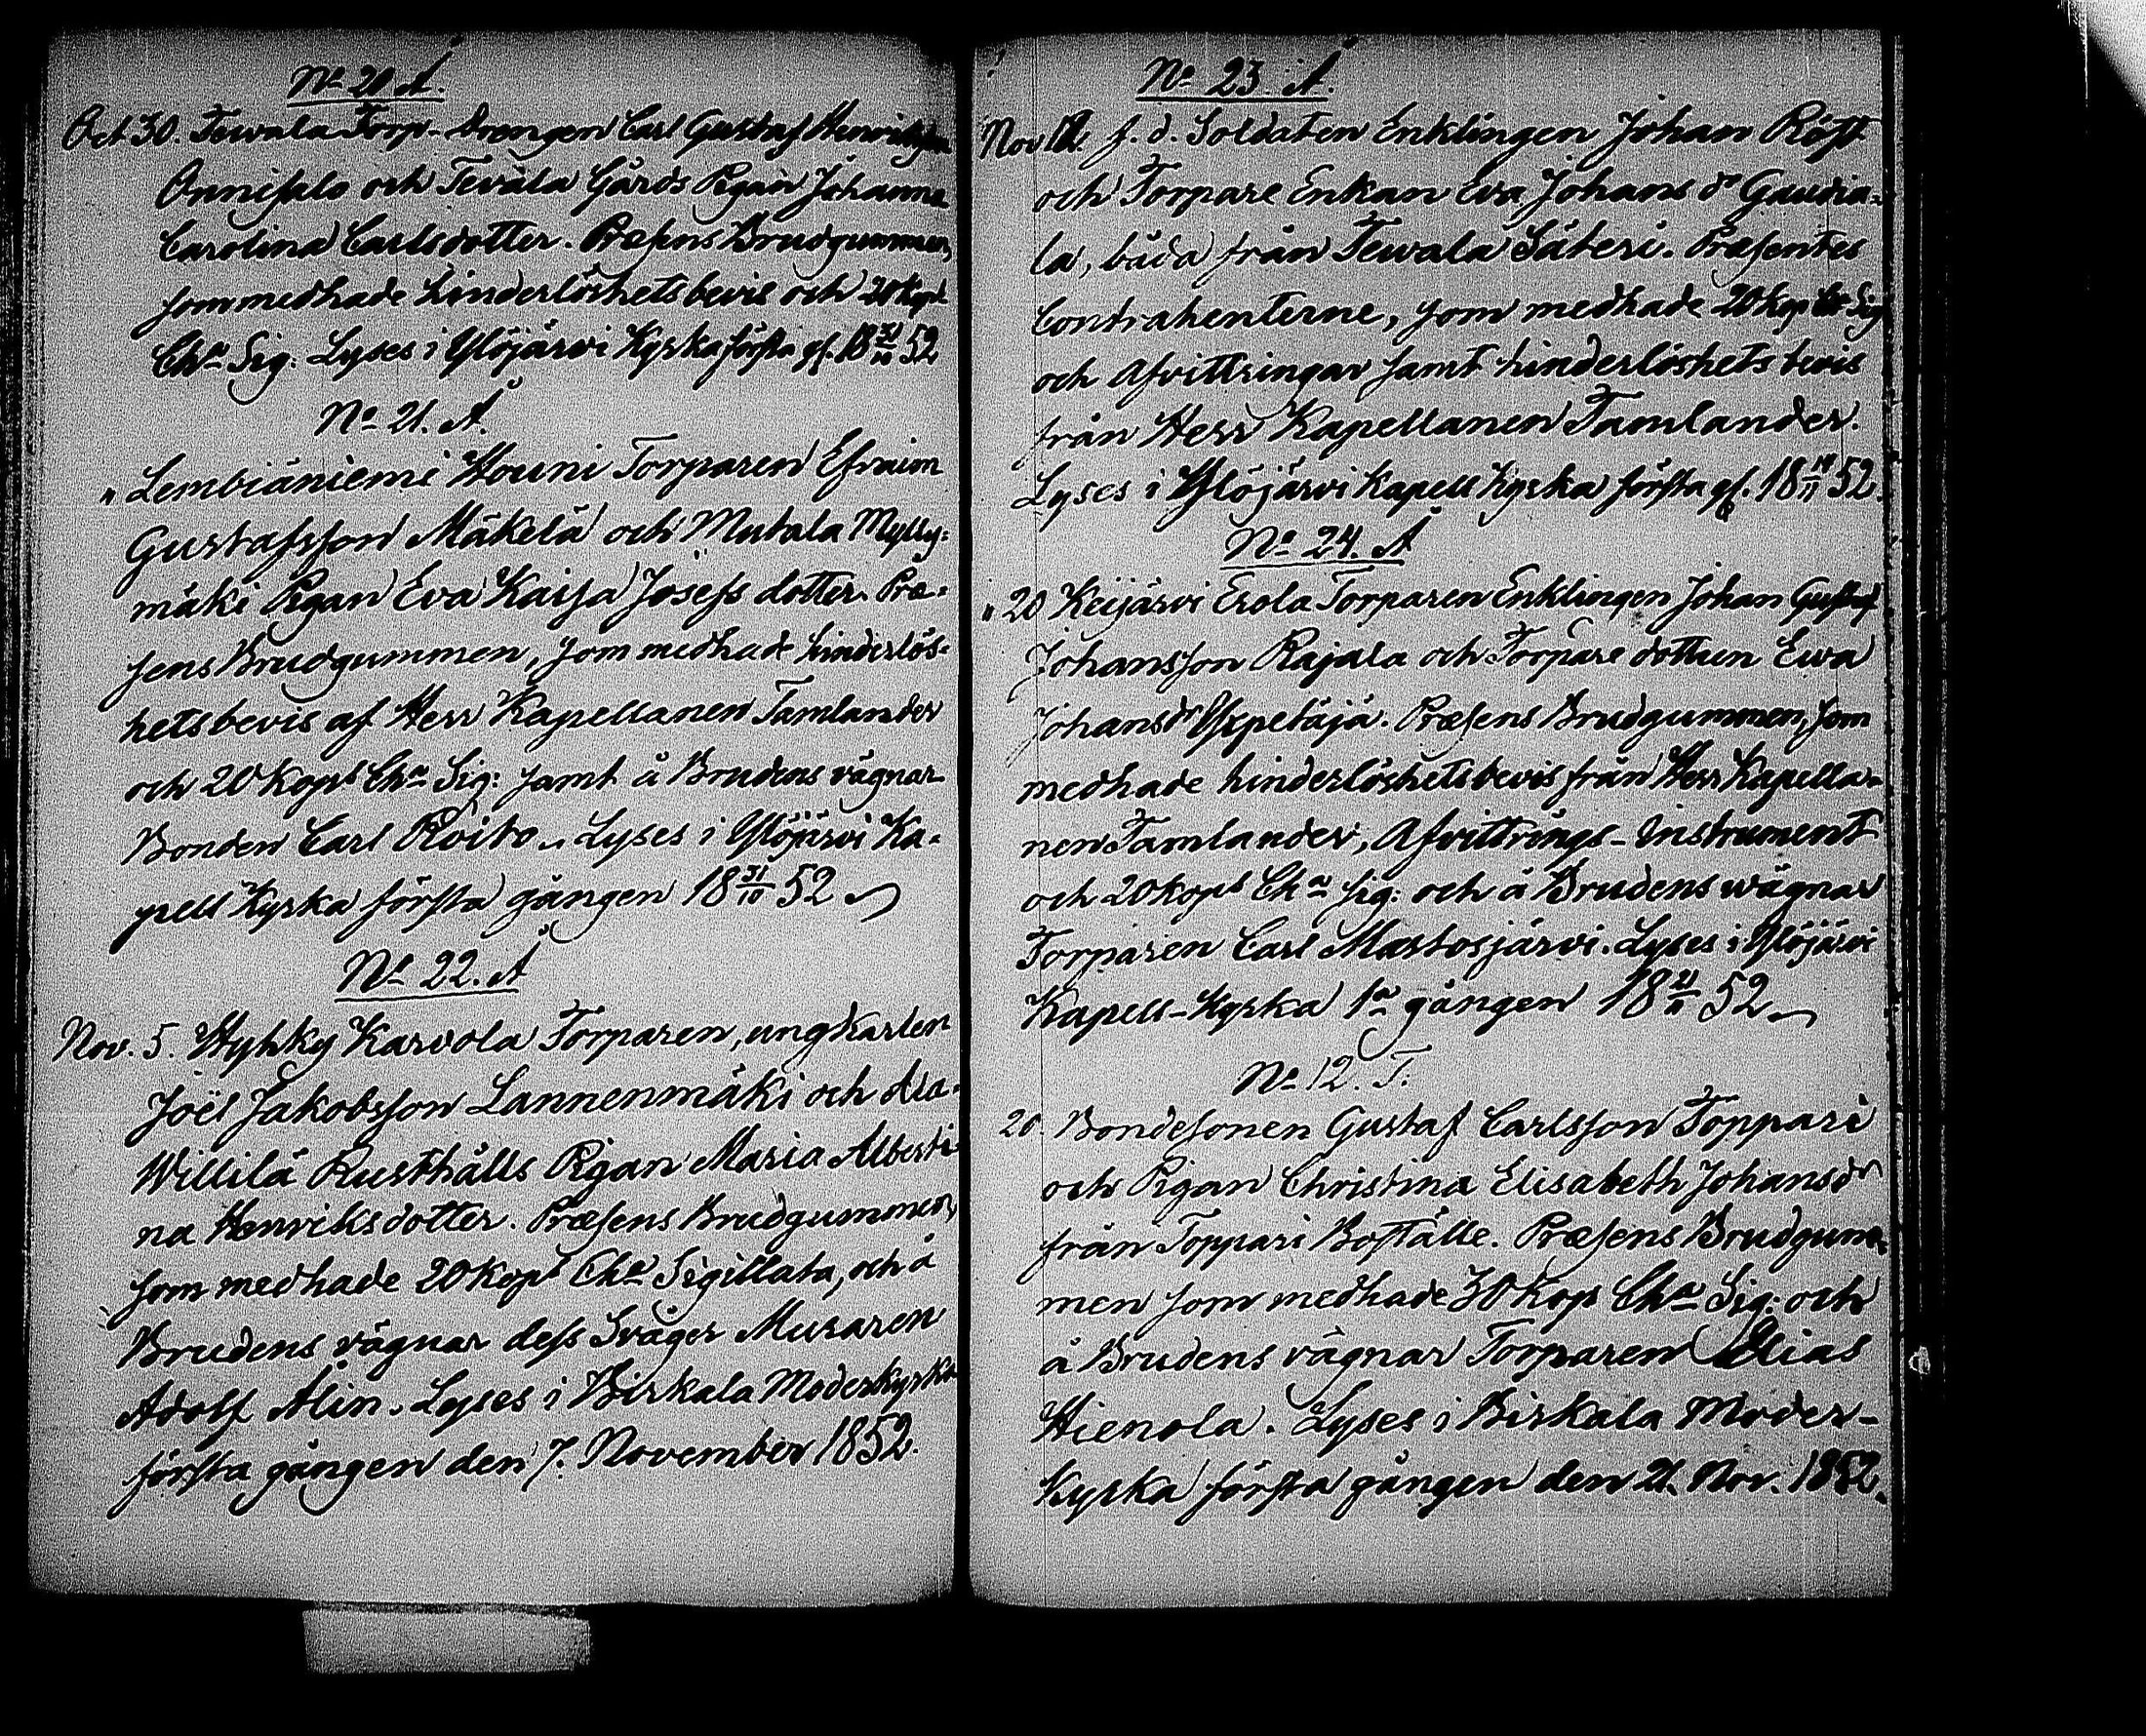 No 20. A.
Oct. 30. Tewala Torp-Drengen Carl Gustaf Henriksson
Onnisalo och Tevala Gårds Pigan Johanna
Carolina Carlsdotter. Præsens Brudgummen,
som medhade hinderlöshetsbevis och 20 kop.
Cha Sig. Lyses i Ylöjärvi Kyrka första gf. 18 31/10 52
No 21. A.
" Lembiäniemi Houni Torparen Efraim
Gustafsson Mäkelä och Mutala Mylly=
mäki Pigan Eva Kaisa Josefs dotter. Præ=
sens Brudgummen, som medhade hinderlös=
hetsbevis af Herr Kapellanen Tamlander
och 20 kops Cha Sig: samt å Brudens vägnar
Bonden Carl Roito. Lyses i Ylöjärvi Ka=
pell Kyrka första gången 18 31/10 52
No 22. A
Nov. 5. Hyhky Karvola Torparen, ungkarlen
Joël Jakobsson Lannenmäki och Ala=
Willilä Rusthålls Pigan Maria Alberti=
na Henriksdotter. Præsens Brudgummen,
som medhade 20 kops Cha Sigillata, och å
Brudens vägnar dess Svåger Muraren
Adolf Alin. Lyses i Birkala Moderkyrka
första gången den 7. November 1852.
No 23. A.
Nov 12. f. d. Soldaten Enklingen Johan Röst
och Torpare Enkan Eva Johans dr Gaudia=
la, båda från Tewala Säteri. Præsentes
Contrahenterne, som medhade 20 kop Cha Sig
och Afvittringar samt hinderlöshets bevis
från Herr Kapellanen Tamlander.
Lyses i Ylöjärvi Kapell Kyrka första gf. 18 14/11 52.
No 24. A
" 20 Keijärvi Erola Torparen Enklingen Johan Gustaf
Johansson Rajala och Torpare dottren Ewa
Johansdr Yspetäjä. Præsens Brudgummen, som
medhade hinderlöshetsbevis från Herr Kapella=
nen Tamlander, Afvittrings-Instrument
och 20 kops Cha Sig: och å Brudens wägnar
Torparen Carl Mastosjärvi. Lyses i Ylöjärvi
Kapell-Kyrka 1a gången 18 21/11 52
No 12. T.
20. Bondesonen Gustaf Carlsson Toppari
och Pigan Christina Elisabeth Johansdr
från Toppari Boställe. Præsens Brudgum=
men som medhade 30 kop Cha Sig: och
å Brudens vägnar Torparen Elias
Hienola. Lyses i Birkala Moder-
Kyrka första gången den 21. Nov. 1852.